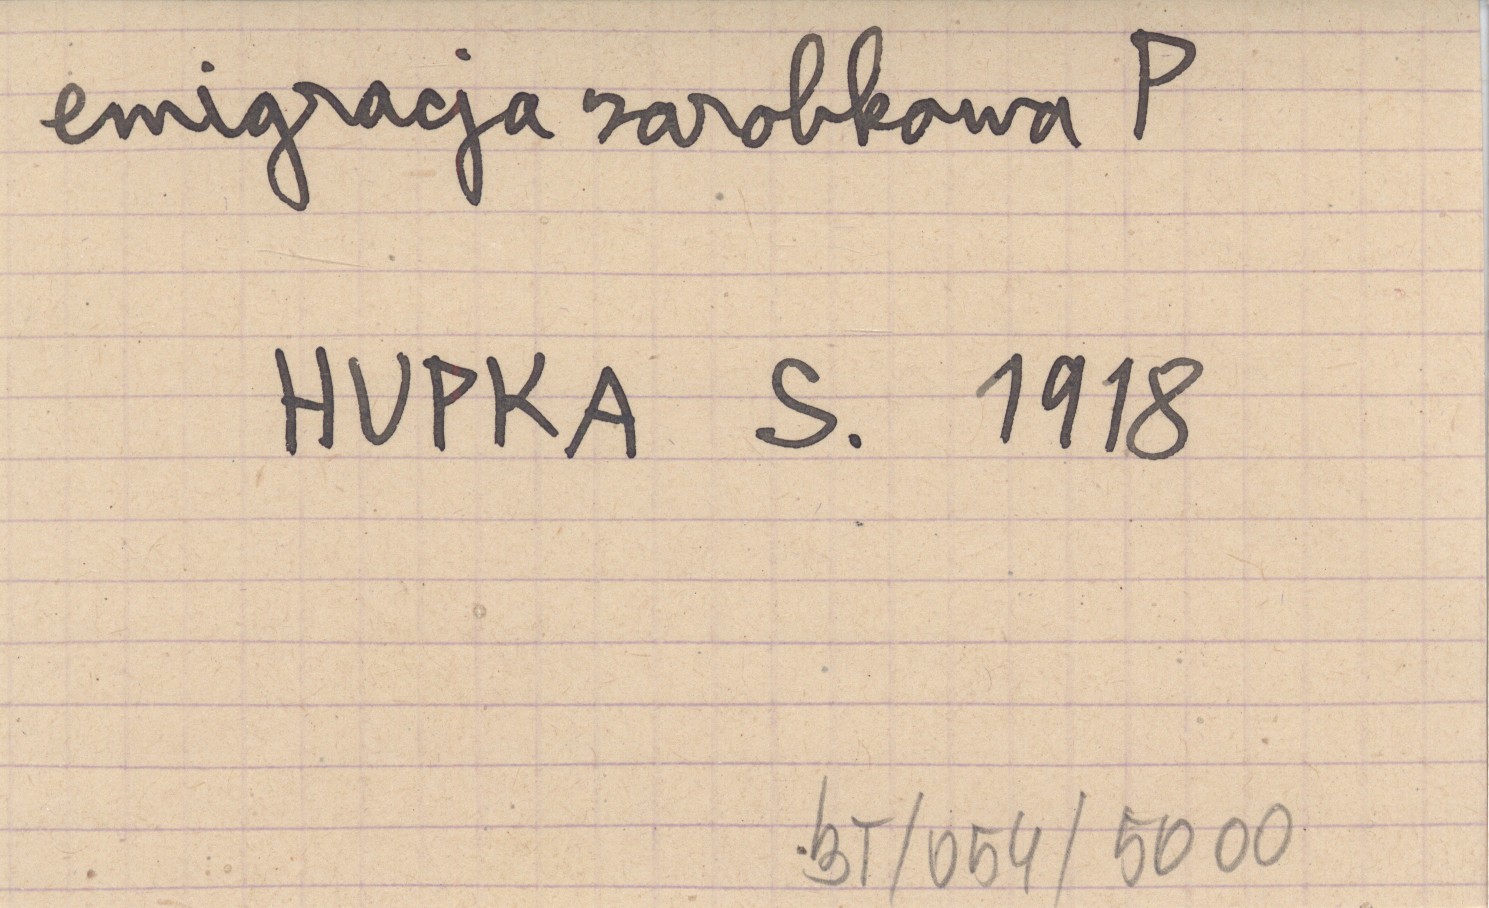 emigracja zarobkowa P
HUPKA S. 1918
BT/054/5000